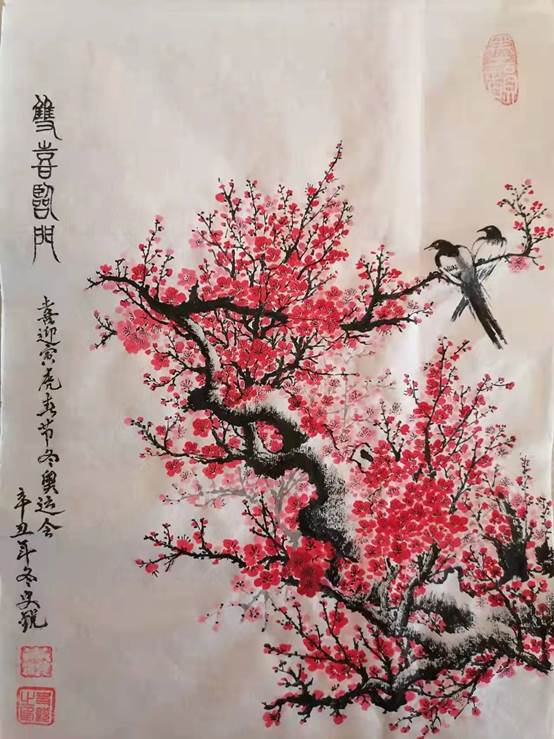 雙喜臨門
喜迎寅虎春节冬奥运会
辛丑年冬史锐